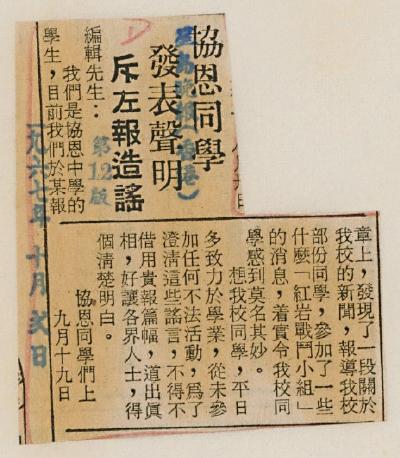 協恩同學
發表聲明
斥左報造謠
星島晚報(香港)
第12版
編輯先生：
我們是協恩中學的
學生，目前我們於某報
章上，發現了一段關於
我校的新聞，報導我校
部份同學，參加了一些
什麼「紅岩戰鬥小組」
的消息，着實令我校同
學感到莫名其妙。
想我校同學，平日
多致力於學業，從未參
加任何不法活動，爲了
澄清這些謠言，不得不
借用貴報篇幅，道出眞
相，好讓各界人士，得
個清楚明白。
協恩同學們上
九月十九日
一九六七年十月弍日